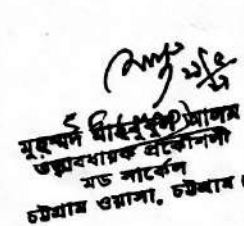 ২১/৫/২১
মুহম্মদ মাহবুবুল আলম
তত্ত্বাবধায়ক প্রকৌশলী
মড সার্কেল
চট্টগ্রাম ওয়াসা, চট্টগ্রাম।